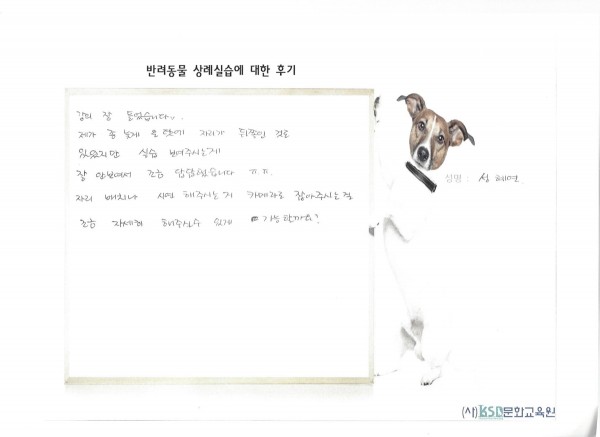 반려동물 상례실습에 대한 후기
강의 잘 들었습니다.
제가 좀 늦게 온 탓에 자리가 뒤쪽인 것도
있었지만 실습 보여주시는게
잘 안보여서 조금 답답했습니다 ㅠㅠ.
자리 배치나 시연 해주시는거 카메라로 잡아주시는걸
조금 자세히 해주실수 있게 가능한가요?
성명 : 심혜연
(사)KSD문화교육원